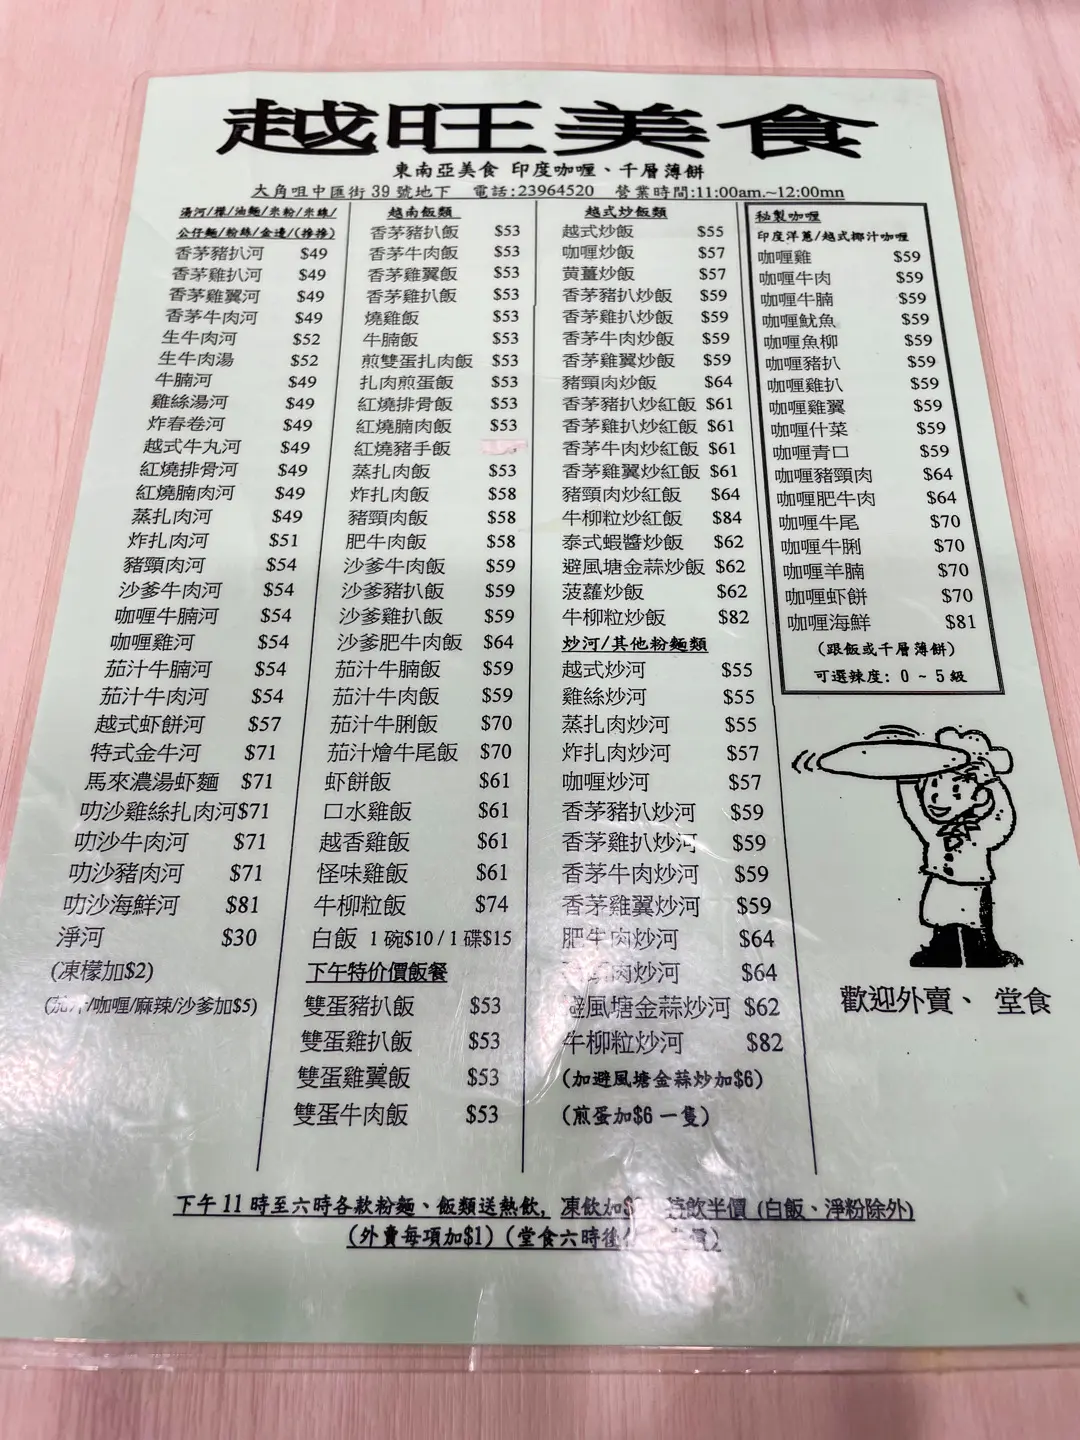 越旺美食
東南亞美食 印度咖喱、千層薄餅
大角咀中匯街 39 號地下 電話:23964520 營業時間:11:00am.~12:00mn
湯河/檬/油麵/米粉/米線/
公仔麵/粉絲/金邊/(撈撈)
香茅豬扒河 $49
香茅雞扒河 $49
香茅雞翼河 $49
香茅牛肉河 $49
生牛肉河 $52
生牛肉湯 $52
牛腩河 $49
雞絲湯河 $49
炸春卷河 $49
越式牛丸河 $49
紅燒排骨河 $49
紅燒腩肉河 $49
蒸扎肉河 $49
炸扎肉河 $51
豬頸肉河 $54
沙爹牛肉河 $54
咖喱牛腩河 $54
咖喱雞河 $54
茄汁牛腩河 $54
茄汁牛肉河 $54
越式虾餅河 $57
特式金牛河 $71
馬來濃湯虾麵 $71
叻沙雞絲扎肉河$71
叻沙牛肉河 $71
叻沙豬肉河 $71
叻沙海鮮河 $81
淨河 $30
(凍檬加$2)
(茄汁/咖喱/麻辣/沙爹加$5)
越南飯類
香茅豬扒飯 $53
香茅牛肉飯 $53
香茅雞翼飯 $53
香茅雞扒飯 $53
燒雞飯 $53
牛腩飯 $53
煎雙蛋扎肉飯 $53
扎肉煎蛋飯 $53
紅燒排骨飯 $53
紅燒腩肉飯 $53
紅燒豬手飯
蒸扎肉飯 $53
炸扎肉飯 $58
豬頸肉飯 $58
肥牛肉飯 $58
沙爹牛肉飯 $59
沙爹豬扒飯 $59
沙爹雞扒飯 $59
沙爹肥牛肉飯 $64
茄汁牛腩飯 $59
茄汁牛肉飯 $59
茄汁牛脷飯 $70
茄汁燴牛尾飯 $70
虾餅飯 $61
口水雞飯 $61
越香雞飯 $61
怪味雞飯 $61
牛柳粒飯 $74
白飯 1 碗$10 / 1 碟$15
下午特价價飯餐
雙蛋豬扒飯 $53
雙蛋雞扒飯 $53
雙蛋雞翼飯 $53
雙蛋牛肉飯 $53
越式炒飯類
越式炒飯 $55
咖喱炒飯 $57
黄薑炒飯 $57
香茅豬扒炒飯 $59
香茅雞扒炒飯 $59
香茅牛肉炒飯 $59
香茅雞翼炒飯 $59
豬頸肉炒飯 $64
香茅豬扒炒紅飯 $61
香茅雞扒炒紅飯 $61
香茅牛肉炒紅飯 $61
香茅雞翼炒紅飯 $61
豬頸肉炒紅飯 $64
牛柳粒炒紅飯 $84
泰式蝦醬炒飯 $62
避風塘金蒜炒飯 $62
菠蘿炒飯 $62
牛柳粒炒飯 $82
炒河/其他粉麵類
越式炒河 $55
雞絲炒河 $55
蒸扎肉炒河 $55
炸扎肉炒河 $57
咖喱炒河 $57
香茅豬扒炒河 $59
香茅雞扒炒河 $59
香茅牛肉炒河 $59
香茅雞翼炒河 $59
肥牛肉炒河 $64
肉炒河 $64
避風塘金蒜炒河 $62
牛柳粒炒河 $82
(加避風塘金蒜炒加$6)
(煎蛋加$6 一隻)
秘製咖喱
印度洋蔥/越式椰汁咖喱
咖喱雞 $59
咖喱牛肉 $59
咖喱牛腩 $59
咖喱魷魚 $59
咖喱魚柳 $59
咖喱豬扒 $59
咖喱雞扒 $59
咖喱雞翼 $59
咖喱什菜 $59
咖喱青口 $59
咖喱豬頸肉 $64
咖喱肥牛肉 $64
咖喱牛尾 $70
咖喱牛脷 $70
咖喱羊腩 $70
咖喱虾餅 $70
咖喱海鮮 $81
(跟飯或千層薄餅)
可選辣度: 0 ~ 5 級
歡迎外賣、 堂食
下午 11 時至六時各款粉麵、飯類送熱飲, 凍飲加$ 特飲半價 (白飯、淨粉除外)
(外賣每項加$1) (堂食六時後